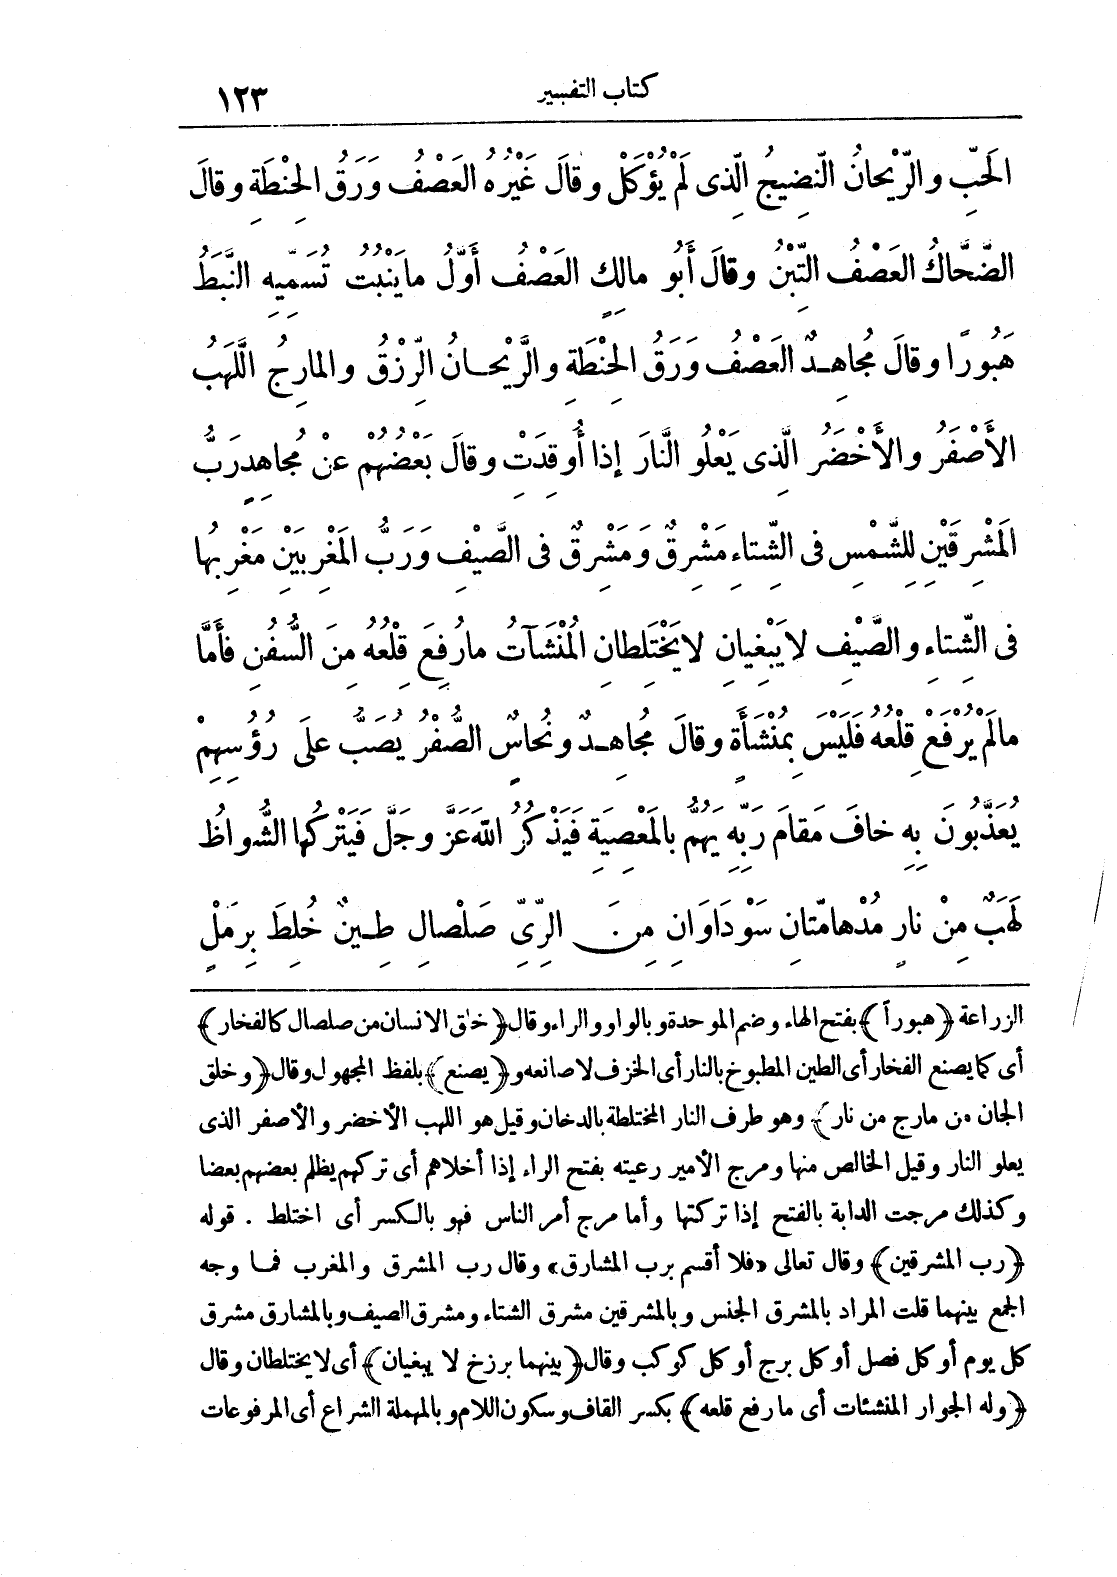 كتاب التفسير ١٢٣
الحَبِّ والرَّيْحانُ النَّضِيجُ الَّذِى لَمْ يُؤْكَلْ وقالَ غَيْرُهُ العَصْفُ وَرَقُ الحِنْطَةِ وقالَ
الضَّحَّاكُ العَصْفُ التِّبْنُ وقالَ أَبُو مالِكٍ العَصْفُ أَوَّلُ ما يَنْبُتُ تُسَمِّيهِ النَّبَطُ
هَبُورًا وقالَ مُجاهِدٌ العَصْفُ وَرَقُ الحِنْطَةِ والرَّيْحانُ الرِّزْقُ والمارِجُ اللَّهَبُ
الأَصْفَرُ والأَخْضَرُ الَّذِى يَعْلُو النَّارَ إذا أُوقِدَتْ وقالَ بَعْضُهُمْ عنْ مُجاهِدٍ رَبُّ
المَشْرِقَيْنِ لِلشَّمْسِ فى الشِّتاءِ مَشْرِقٌ وَمَشْرِقٌ فى الصَّيْفِ وَرَبُّ المَغْرِبَيْنِ مَغْرِبُها
فى الشِّتاءِ والصَّيْفِ لا يَبْغِيانِ لا يَخْتَلِطانِ المُنْشَآتُ ما رُفِعَ قِلْعُهُ مِنَ السُّفُنِ فأَمَّا
مالَمْ يُرْفَعْ قِلْعُهُ فَلَيْسَ بِمُنْشَأَةٍ وقالَ مُجاهِدٌ ونُحاسٌ الصُّفْرُ يُصَبُّ علَى رُؤُسِهِمْ
يُعَذَّبُونَ بِهِ خافَ مَقامَ رَبِّهِ يَهُمُّ بالمَعْصِيَةِ فَيَذْكُرُ اللهَ عَزَّ وجَلَّ فَيَتْرُكُها الشُّواظُ
لَهَبٌ مِنْ نارٍ مُدْهامَّتانِ سَوْدَاوَانِ مِنَ الرِّىِّ صَلْصالٍ طِينٌ خُلِطَ بِرَمْلٍ
الزراعة ﴿هبوراً﴾ بفتح الهاء وضم الموحدة وبالواو والراء وقال ﴿خلق الانسان من صلصال كالفخار﴾
أى كما يصنع الفخار أى الطين المطبوخ بالنار أى الخزف لا صانعه و﴿يصنع﴾ بلفظ المجهول وقال ﴿وخلق
الجان من مارج من نار﴾ وهو طرف النار المختلطة بالدخان وقيل هو اللهب الأخضر والأصفر الذى
يعلو النار وقيل الخالص منها ومرج الأمير رعيته بفتح الراء إذا أخلاهم أى تركهم يظلم بعضهم بعضا
وكذلك مرجت الدابة بالفتح إذا تركتها وأما مرج أمر الناس فهو بالكسر أى اختلط . قوله
﴿رب المشرقين﴾ وقال تعالى «فلا أقسم برب المشارق» وقال رب المشرق والمغرب فما وجه
الجمع بينهما قلت المراد بالمشرق الجنس وبالمشرقين مشرق الشتاء ومشرق الصيف وبالمشارق مشرق
كل يوم أو كل فصل أو كل برج أو كل كوكب وقال ﴿بينهما برزخ لا يبغيان﴾ أى لا يختلطان وقال
﴿وله الجوار المنشئات أى ما رفع قلعه﴾ بكسر القاف وسكون اللام وبالمهملة الشراع أى المرفوعات